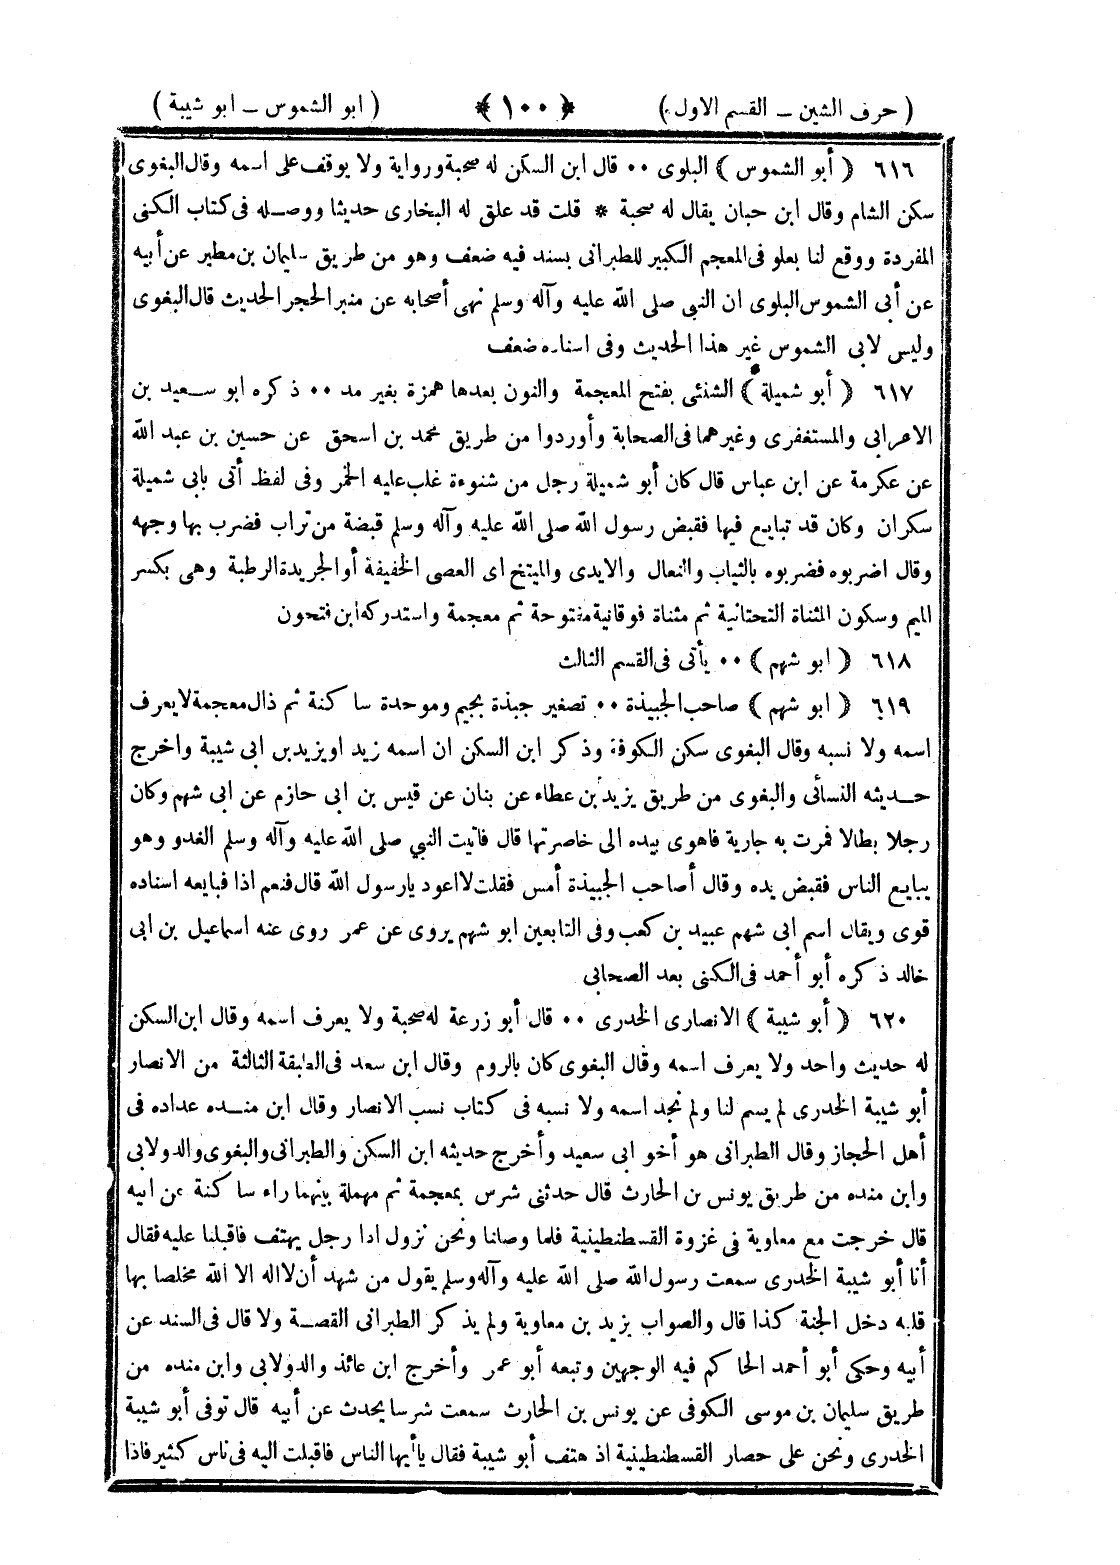 ( حرف الشين ـ القسم الاول ) ﴿ ١٠٠ ﴾ ( ابو الشموس ـ ابو شيبة )
٦١٦ ﴿ أبو الشموس ﴾ البلوى ٠٠ قال ابن السكن له صحبة ورواية ولا يوقف على اسمه وقال البغوى
سكن الشام وقال ابن حبان يقال له صحبة * قلت قد علق له البخارى حديثا ووصله فى كتاب الكنى
المفردة ووقع لنا بعلو فى المعجم الكبير للطبرانى بسند فيه ضعف وهو من طريق سليمان بن مطير عن أبيه
عن أبى الشموس البلوى ان النبى صلى الله عليه وآله وسلم نهى أصحابه عن منبر الحجر الحديث قال البغوى
وليس لابى الشموس غير هذا الحديث وفى اسناده ضعف
٦١٧ ﴿ أبو شميلة ﴾ الشنئى بفتح المعجمة والنون بعدها همزة بغير مد ٠٠ ذكره ابو سعيد بن
الاعرابى والمستغفرى وغيرهما فى الصحابة وأوردوا من طريق محمد بن اسحق عن حسين بن عبد الله
عن عكرمة عن ابن عباس قال كان أبو شميلة رجل من شنوءة غلب عليه الخمر وفى لفظ أتى بابى شميلة
سكران وكان قد تبايع فيها فقبض رسول الله صلى الله عليه وآله وسلم قبضة من تراب فضرب بها وجهه
وقال اضربوه فضربوه بالثياب والنعال والايدى والميتخ اى العصى الخفيفة أو الجريدة الرطبة وهى بكسر
الميم وسكون المثناة التحتانية ثم مثناة فوقانية مفتوحة ثم معجمة واستدركه ابن فتحون
٦١٨ ﴿ ابو شهم ﴾ ٠٠ يأتى فى القسم الثالث
٦١٩ ﴿ ابو شهم ﴾ صاحب الجبيذة ٠٠ تصغير جبذة بجيم وموحدة ساكنة ثم ذال معجمة لا يعرف
اسمه ولا نسبه وقال البغوى سكن الكوفة وذكر ابن السكن ان اسمه زيد او يزيد بن ابى شيبة واخرج
حديثه النسأى والبغوى من طريق يزيد بن عطاء عن بنان عن قيس بن ابى حازم عن ابى شهم وكان
رجلا بطالا فمرت به جارية فاهوى بيده الى خاصرتها قال فاتيت النبي صلى الله عليه وآله وسلم الغدو وهو
يبايع الناس فقبض يده وقال أصاحب الجبيذة أمس فقلت لا اعود يارسول الله قال فنعم اذا فبايعه اسناده
قوى ويقال اسم ابى شهم عبيد بن كعب وفى التابعين ابو شهم يروى عن عمر روى عنه اسماعيل بن ابى
خالد ذكره أبو أحمد فى الكنى بعد الصحابى
٦٢٠ ﴿ أبو شيبة ﴾ الانصارى الخدرى ٠٠ قال أبو زرعة له صحبة ولا يعرف اسمه وقال ابن السكن
له حديث واحد ولا يعرف اسمه وقال البغوى كان بالروم وقال ابن سعد فى الطبقة الثالثة من الانصار
أبو شيبة الخدرى لم يسم لنا ولم نجد اسمه ولا نسبه فى كتاب نسب الانصار وقال ابن منده عداده فى
أهل الحجاز وقال الطبرانى هو أخو ابى سعيد وأخرج حديثه ابن السكن والطبرانى والبغوى والدولابى
وابن منده من طريق يونس بن الحارث قال حدثنى شرس بمعجمة ثم مهملة بينهما راء ساكنة عن ابيه
قال خرجت مع معاوية فى غزوة القسطنطينية فلما وصلنا ونحن نزول اذا رجل يهتف فاقبلنا عليه فقال
أنا أبو شيبة الخدرى سمعت رسول الله صلى الله عليه وآله وسلم يقول من شهد أن لا اله الا الله مخلصا بها
قلبه دخل الجنة كذا قال والصواب يزيد بن معاوية ولم يذكر الطبرانى القصة ولا قال فى السند عن
أبيه وحكى أبو أحمد الحاكم فيه الوجهين وتبعه أبو عمر وأخرج ابن عائذ والدولابى وابن منده من
طريق سليمان بن موسى الكوفى عن يونس بن الحارث سمعت شرسا يحدث عن أبيه قال توفى أبو شيبة
الخدرى ونحن على حصار القسطنطينية اذ هتف أبو شيبة فقال يأيها الناس فاقبلت اليه فى ناس كثير فاذا